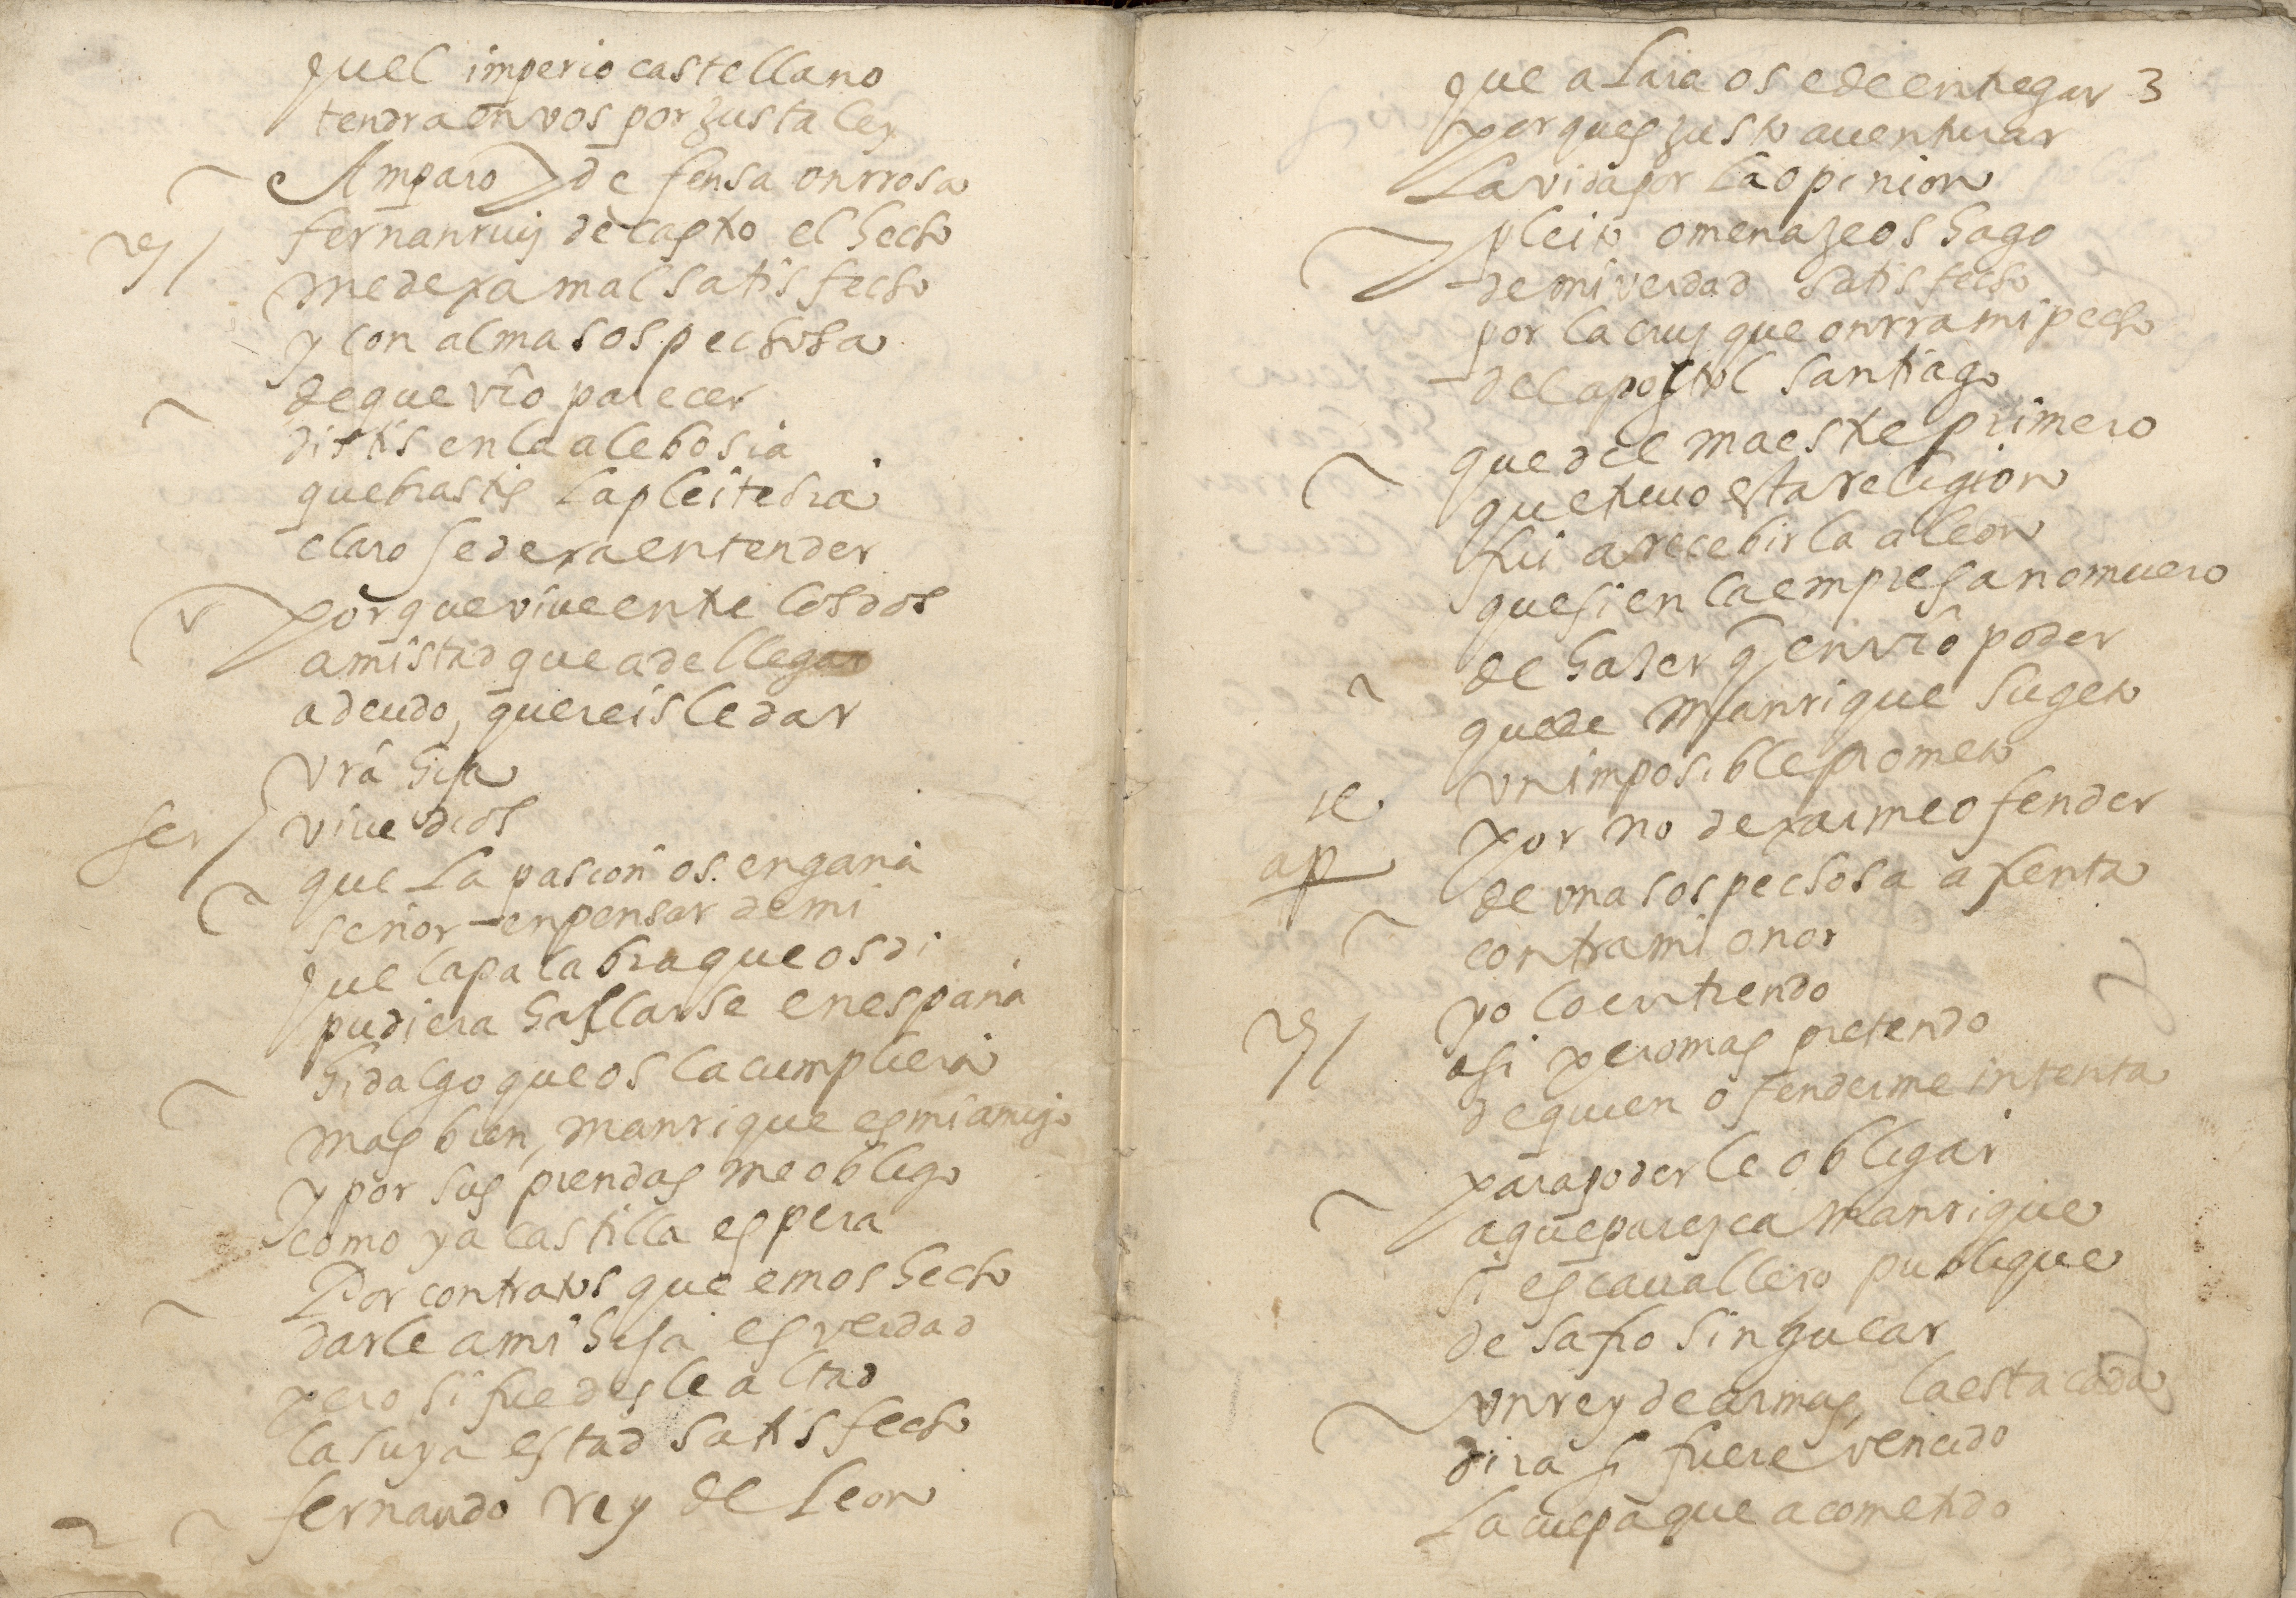 quel imperio castellano
tendra en vos por justa ley
Amparo y defensa onrrosa
Rey fernan ruiz de castro el hecho
me dexa mal satisfecho
y con alma sospechosa
de que vro parecer
distis en la alebosia
quebrastis la pleitesia
claro se dexa entender
porque vive entre los dos
amistad que a de llegar
a deudo, quereisle dar
vra hija
fer vive dios
que la pasion os engaña
señor en pensar de mi
que la palabra que os di
pudiera hallarse en españa
hidalgo que os la cumpliera
mas bien, manrique es mi amigo
y por sus prendas me obligo
como ya castilla espera
Por contratos que emos hecho
darle a mi hija es verdad
pero si fue deslealtad
la suya estad satisfecho
fernando rey de leon
que a Lara os e de entregar 3
porques justo aventurar
la vida por la opinion
pleito omenaje os hago
de mi verdad satisfecho
por la cruz que onrra mi pecho
del apostol santiago
que del maestre primero
que tuvo esta religion
fui a recebirla a leon
que si en la empresa no muero
de hazer q en vro poder
quede Manrique sugeto
un imposible prometo
por no dexarme ofender
ap de una sospechosa afrenta
contra mi onor
yo lo entiendo
Rey asi pero mas pretendo
de quien ofenderme intenta
para poderle obligar
a que paresca manrique
si es cavallero publique
desafio singular
un rey de armas, la estacada
dira si fuere vencido
la culpa que a cometido